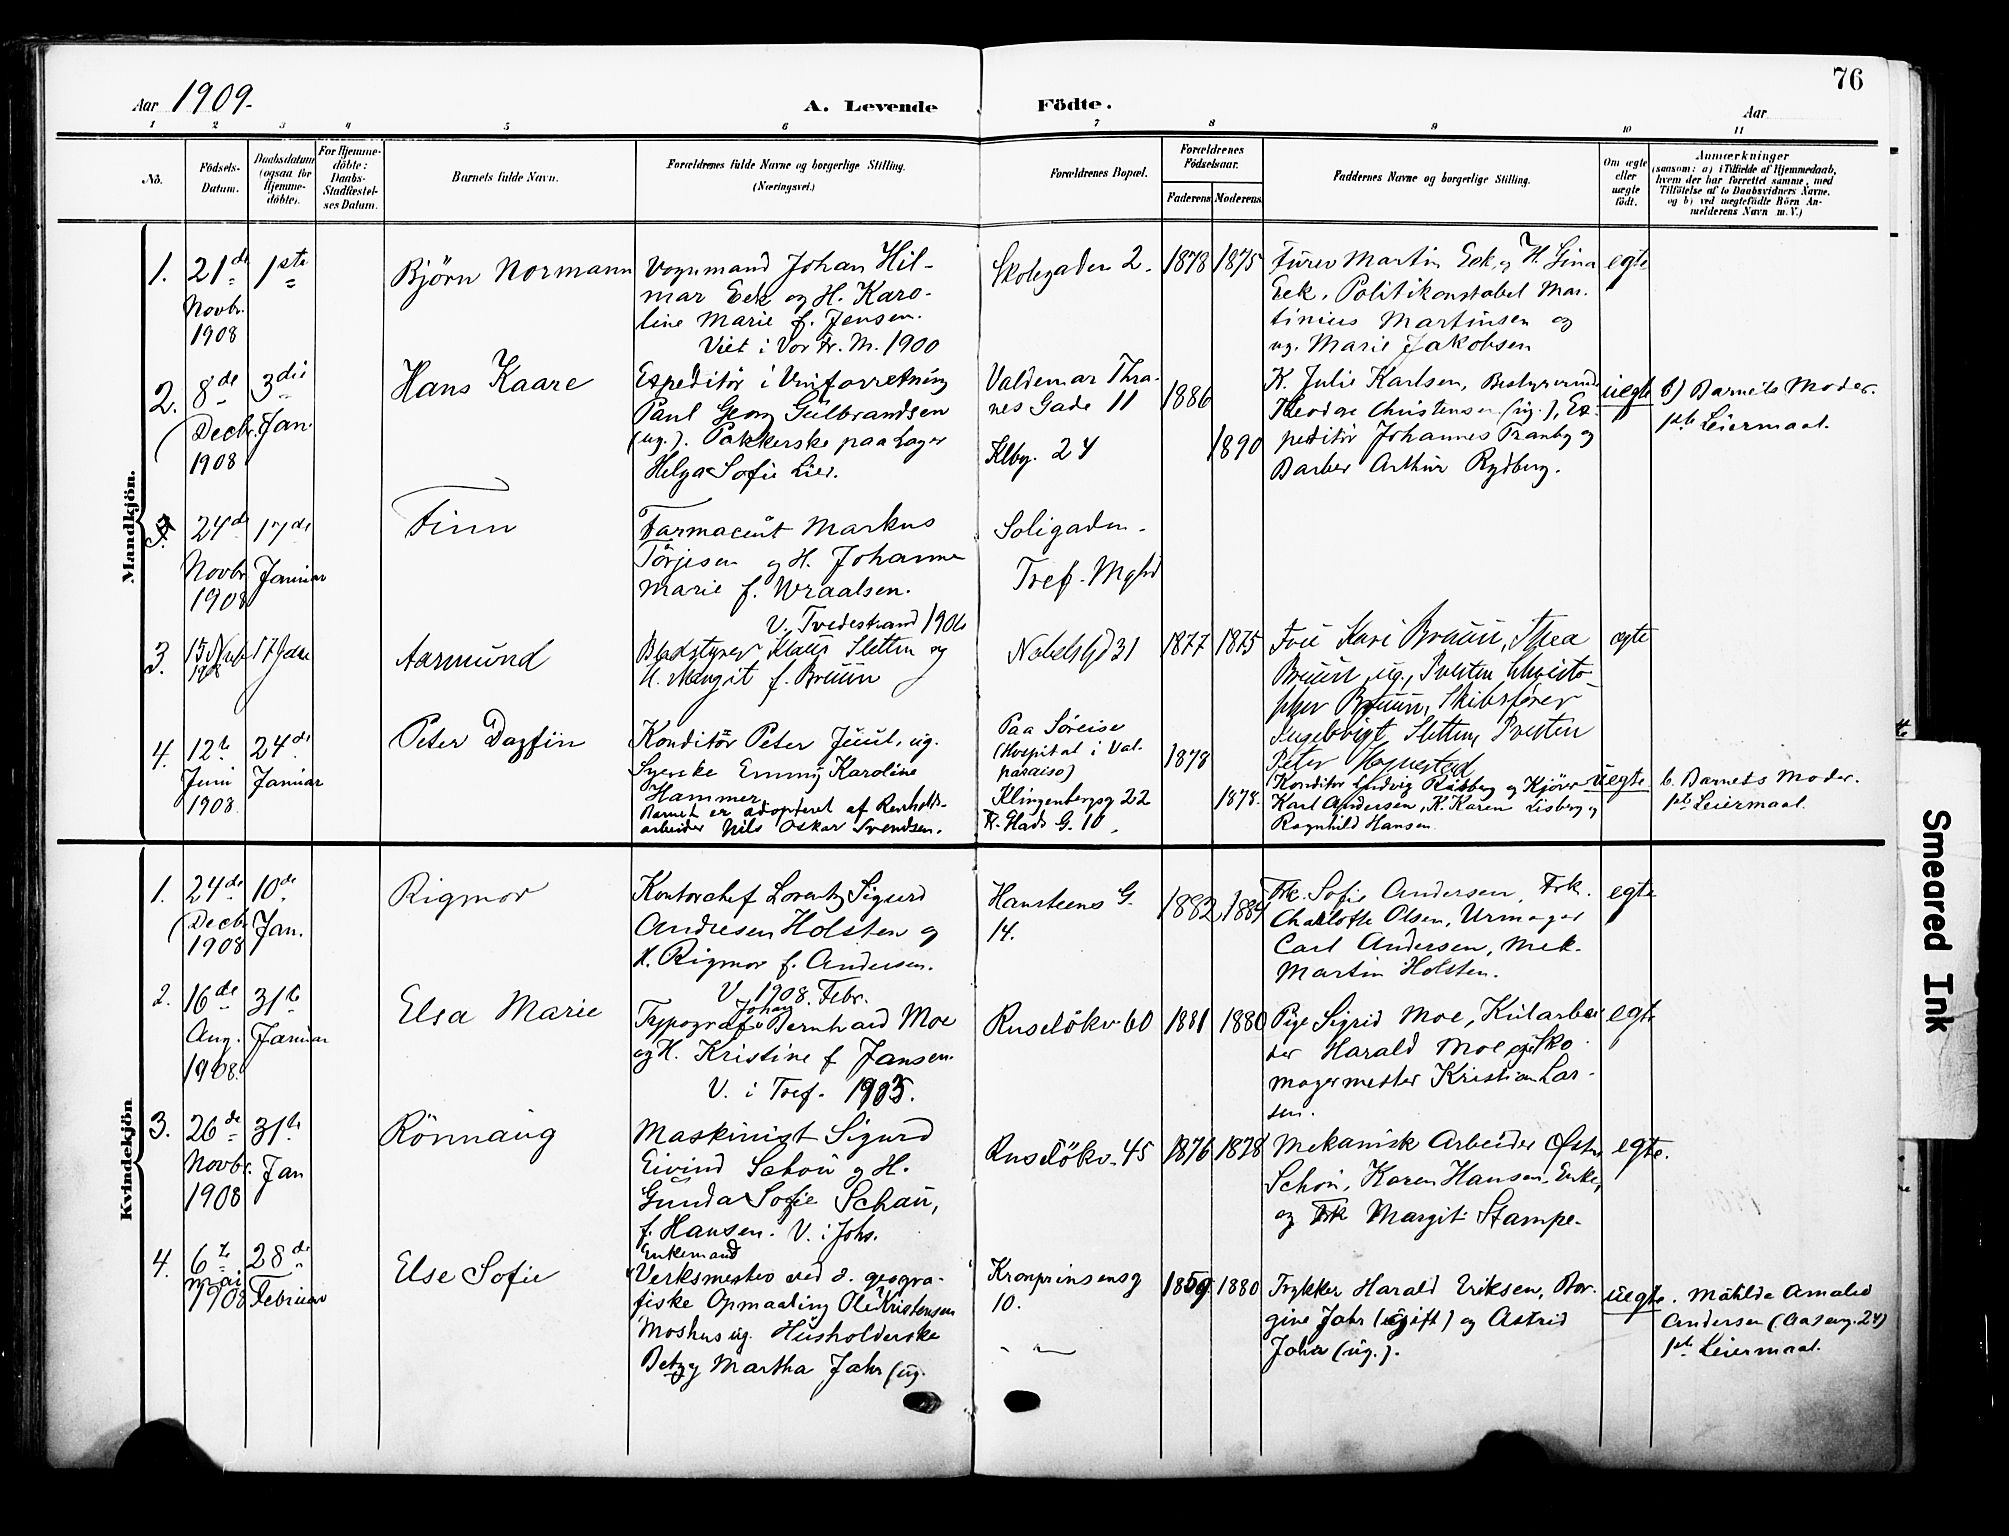 76
Aar 1909. A. Levende Födte. Aar
1 2 3 4 5 6 7 8 9 10 11
No.
Födsels-
Datum.
Daabsdatum
(ogsaa for
Hjemme-
döbte).
For Hjemme-
döbte:
Daabs-
Stadfæstel-
ses Datum.
Barnets fulde Navn.
Forældrenes fulde Navne og borgerlige Stilling.
(Næringsvei.)
Forældrenes Bopæl.
Forældrenes
Födselsaar.
Faderens Moderens
Faddernes Navne og borgerlige Stilling.
Om ægte
eller
uægte
födt.
Anmærkninger
(saasom: a) i Tilfælde af Hjemmedaab,
hvem der har forrettet samme, med
Tilföielse af to Daabsvidners Navne,
og b) ved uægtefödte Börn An-
melderens Navn m. V.)
Mandkjön.
1.
21de
Novbr.
1908
1ste
Björn Normann
Vognmand Johan Hil-
mar Eek og H. Karo-
line Marie f. Jensen.
Viet i Vor Fr. M. 1900
Skolegaden 2.
1878
1875
Furer Martin Eek og H. Lina
Eek, Politikonstabel Mar-
tinius Martinsen og
ug. Marie Jakobsen
egte
2.
8de
Decbr.
1908
3die
Jan.
Hans Kaare
Expeditör i Vinforretning
Paul Georg Gulbrandsen
(ug.). Pakkerske paa Lager
Helga Sofie Lier.
Valdemar Thra-
nes Gade 11
Klbg. 24
1886
1890
K. Julie Karlsen, Bestyrerinde
Theodore Christensen (ug.), Ex-
peditör Johannes Tranby og
Barber Arthur Rydberg.
uegte
b) Barnets Moder.
1ste Leiermaal.
24de
Novbr.
1908
17de
Januar
Finn
Farmaceut Markus
Törjesen og H. Johanne
Marie f. Wraalsen.
V. Tvedestrand 1906
Soligaden.
Tref. Mghd
3.
15 Nvbr
1908
17 Jan
Aasmund
Badstyrer Klaus Sletten og
H. Margit f. Bruun
Nobelsgd 31
1877
1875
Frue Kari Bruun, Thea
Bruun, ug., Presten Christo-
pher Bruun, Skibsfører
Ingebrigt Sletten, Presten
Peter Hognestad
egte
4.
12te
Juni
1908
24de
Januar
Peter Dagfin
Konditör Peter Juul, ug.
Syerske Emmy Karoline
Hammer
Barnet er adopteret af Renholds-
arbeider Nils Oskar Svendsen.
Paa Söreise
(Hospital i Val-
paraiso)
Klingenbergsg 22
Fr. Glads G. 10.
1878
1878.
Konditor Ludvig Risberg og Kjörer
Karl Andersen, K. Karen Lisberg og
Ragnhild Hansen.
uegte
b. Barnets Moder.
1ste Leiermaal.
Kvindekjön
1.
24de
Decbr.
1908
10de
Jan.
Rigmor
Kontorchef Lorentz Sigurd
Andresen Holsten og
H. Rigmor f. Andersen.
V. 1908. Febr.
Hansteens G.
14.
1882
1884
Frk. Sofie Andersen, Frk.
Charlotte Olsen, Urmager
Carl Andersen, Mek.
Martin Holsten.
egte
2.
16de
Aug.
1908.
31te
Januar
Elsa Marie
Johan
Typograf Bernhard Moe
og H. Kristine f. Jansen.
V. i Tref. 1903.
Ruselökv. 60
1881
1880
Pige Sigrid Moe, Kularbei-
der Harald Moe og Sko-
magermester Kristian Lar-
sen.
egte
3.
26de
Novbr.
1908
31te
Jan
Rönnaug
Maskinist Sigurd
Eivind Schou og H.
Gunda Sofie Schau,
f. Hansen. V. i Johs.
Ruselökv. 45
1876
1878
Mekanisk Arbeider Östen
Schou, Karen Hansen, Enke,
og Frk Margit Stampe.
egte.
4.
6te
Mai
1908
28de
Februar
Else Sofie
Enkemand
Verksmester ved d. geogra-
fiske Opmaaling Ole Kristensen
Moshus ug. Husholderske
Betzy Martha Jahr (ug.
Kronprinsensg
10.
- " -
1859.
1880
Trykker Harald Eriksen, Bor-
gine Jahr (ugift) og Astrid
Jahr (ug.).
uegte.
Mathilda Amalie
Andersen (Aasvg. 24)
1ste Leiermaal.
Smeared Ink